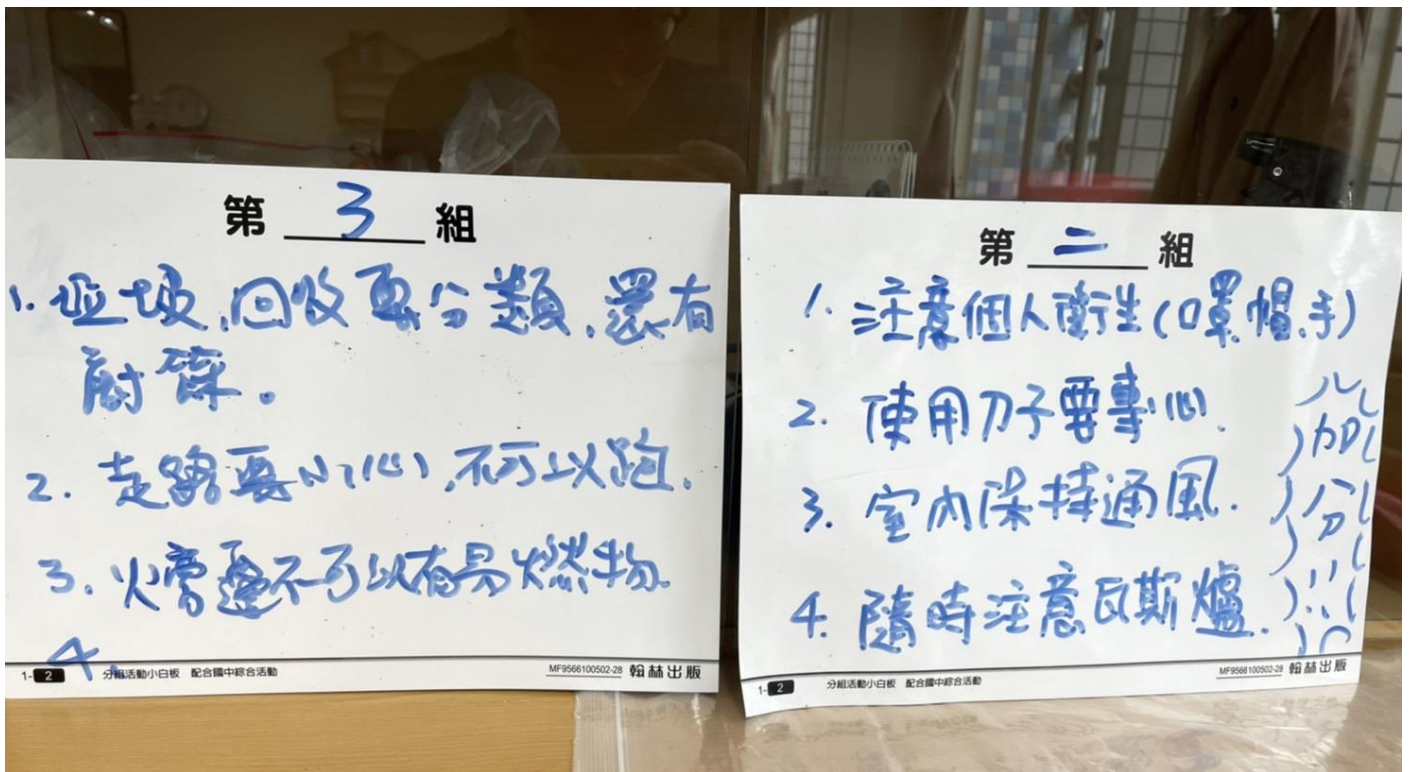 第 3 組
1. 垃圾,回收要分類,還有
廚餘。
2. 走路要小心,不可以跑.
3. 火旁邊不可以有易燃物.
4.
1-2 分組活動小白板 配合國中綜合活動 MF9566100502-28 翰林出版
第 二 組
1. 注意個人衛生(口罩、帽、手)
2. 使用刀子要專心.
3. 室內保持通風.
4. 隨時注意瓦斯爐.
加
分
!!
1-2 分組活動小白板 配合國中綜合活動 MF9566100502-28 翰林出版